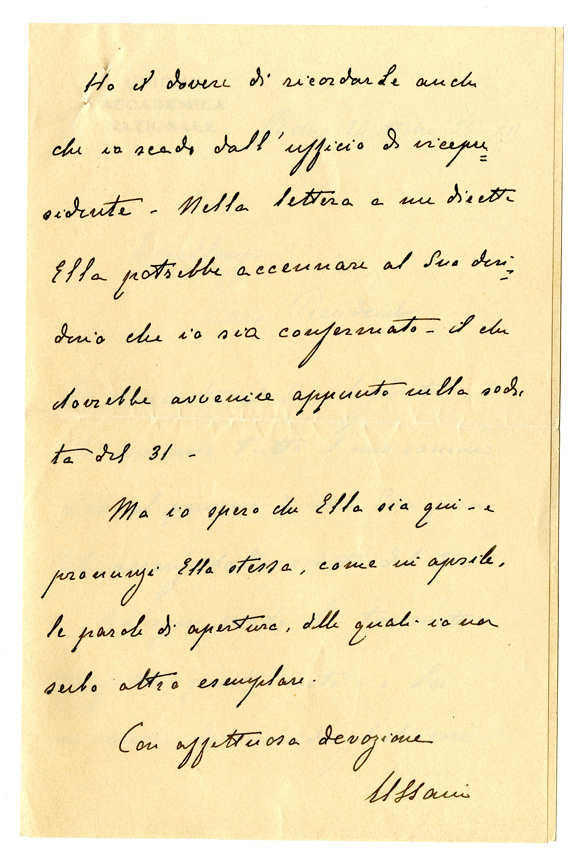 Ho il dovere di ricordarLe anche
che io scado dall'ufficio di vicepre=
sidente - Nella lettera a me diretta
Ella potrebbe accennare al Suo desi=
derio che io sia confermato - il che
dovrebbe avvenire appunto nella sedu
ta del 31 -
Ma io spero che Ella sia qui - e
pronunzi Ella stessa, come in aprile,
le parole di apertura, delle quali io non
serbo altro esemplare.
Con affettuosa devozione
Ussani